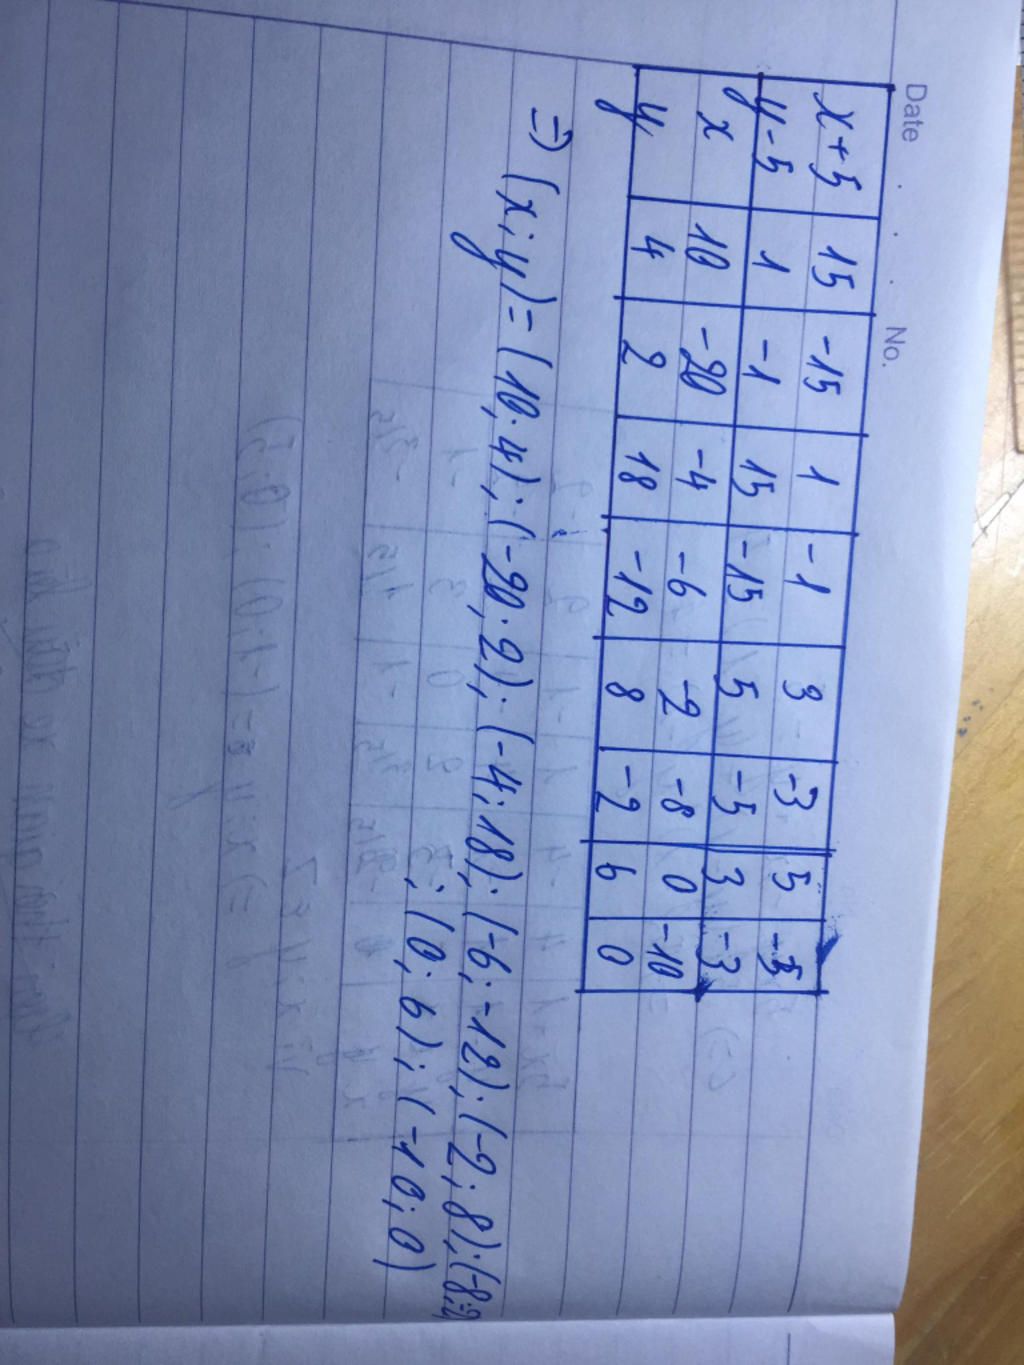 Date No.
x+5 15 -15 1 -1 3 -3 5 -5
y-5 1 -1 15 -15 5 -5 3 -3
x 10 -20 -4 -6 -2 -8 0 -10
y 4 2 18 -12 8 -2 6 0
=> (x; y) = (10; 4); (-20; 2); (-4; 18); (-6; -12); (-2; 8); (-8; -2)
; (0; 6); (-10; 0)